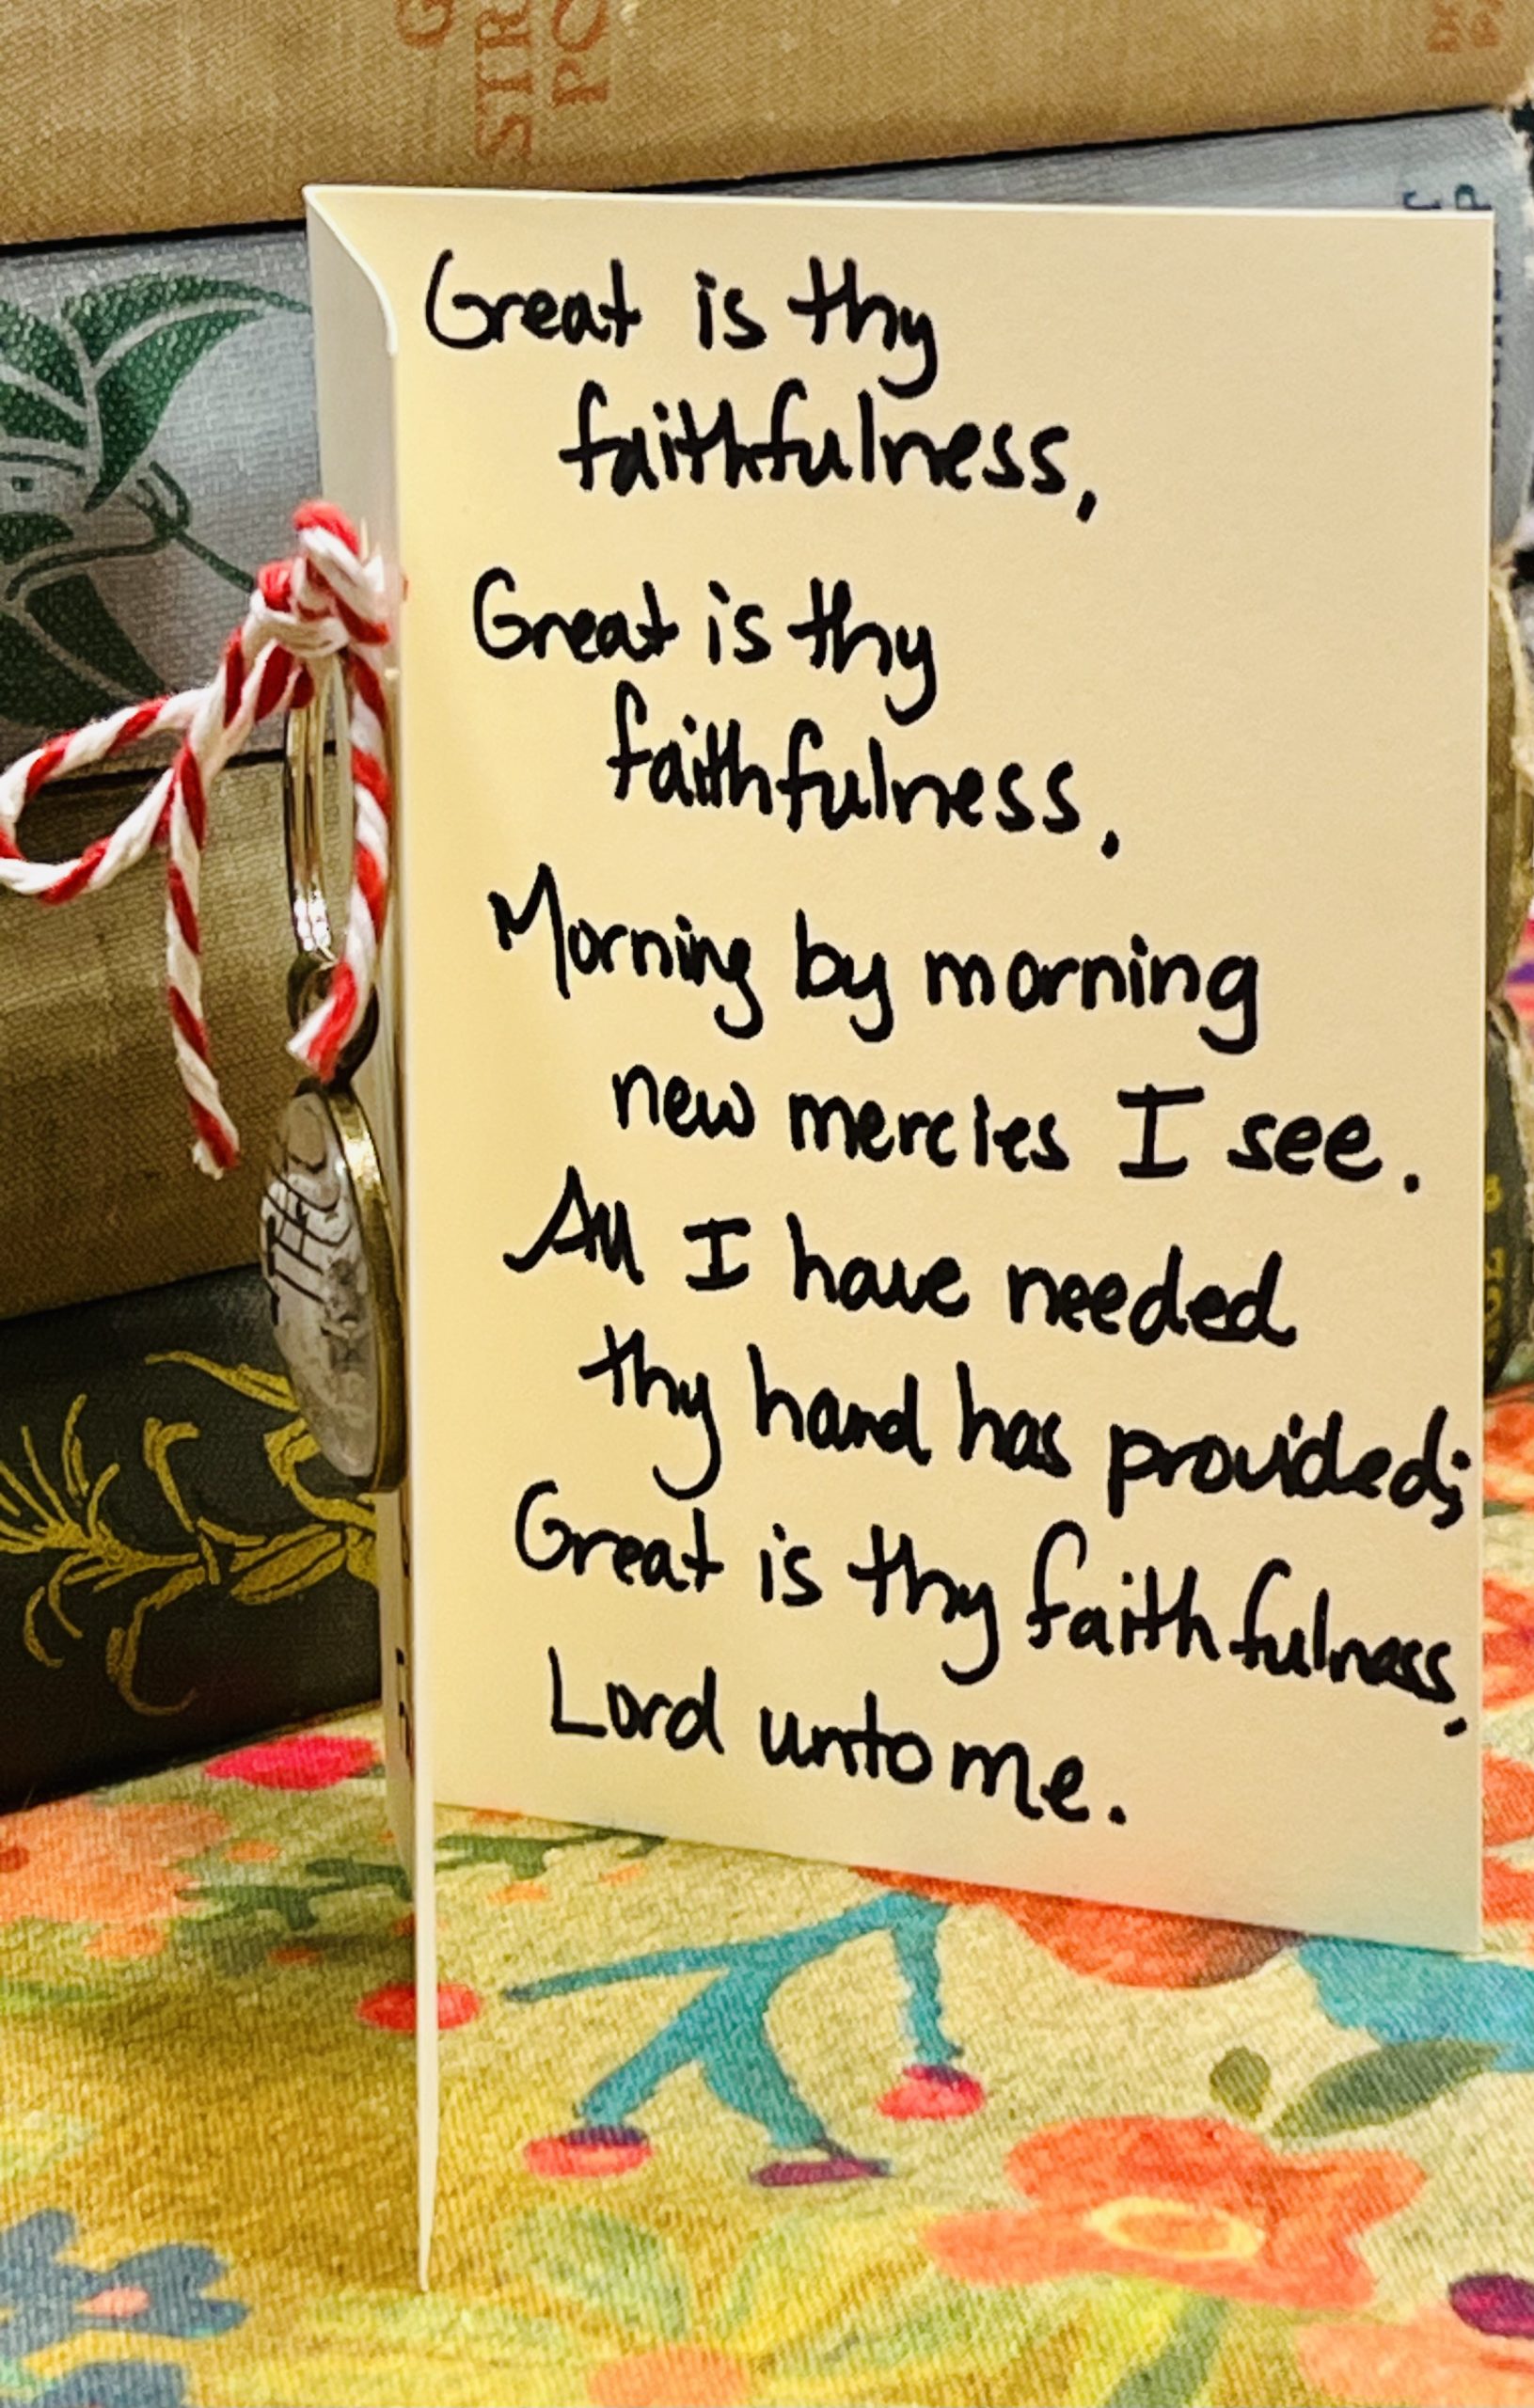 Great is thy
faithfulness,
Great is thy
faithfulness.
Morning by morning
new mercies I see.
All I have needed
thy hand has provided;
Great is thy faithfulness,
Lord unto me.